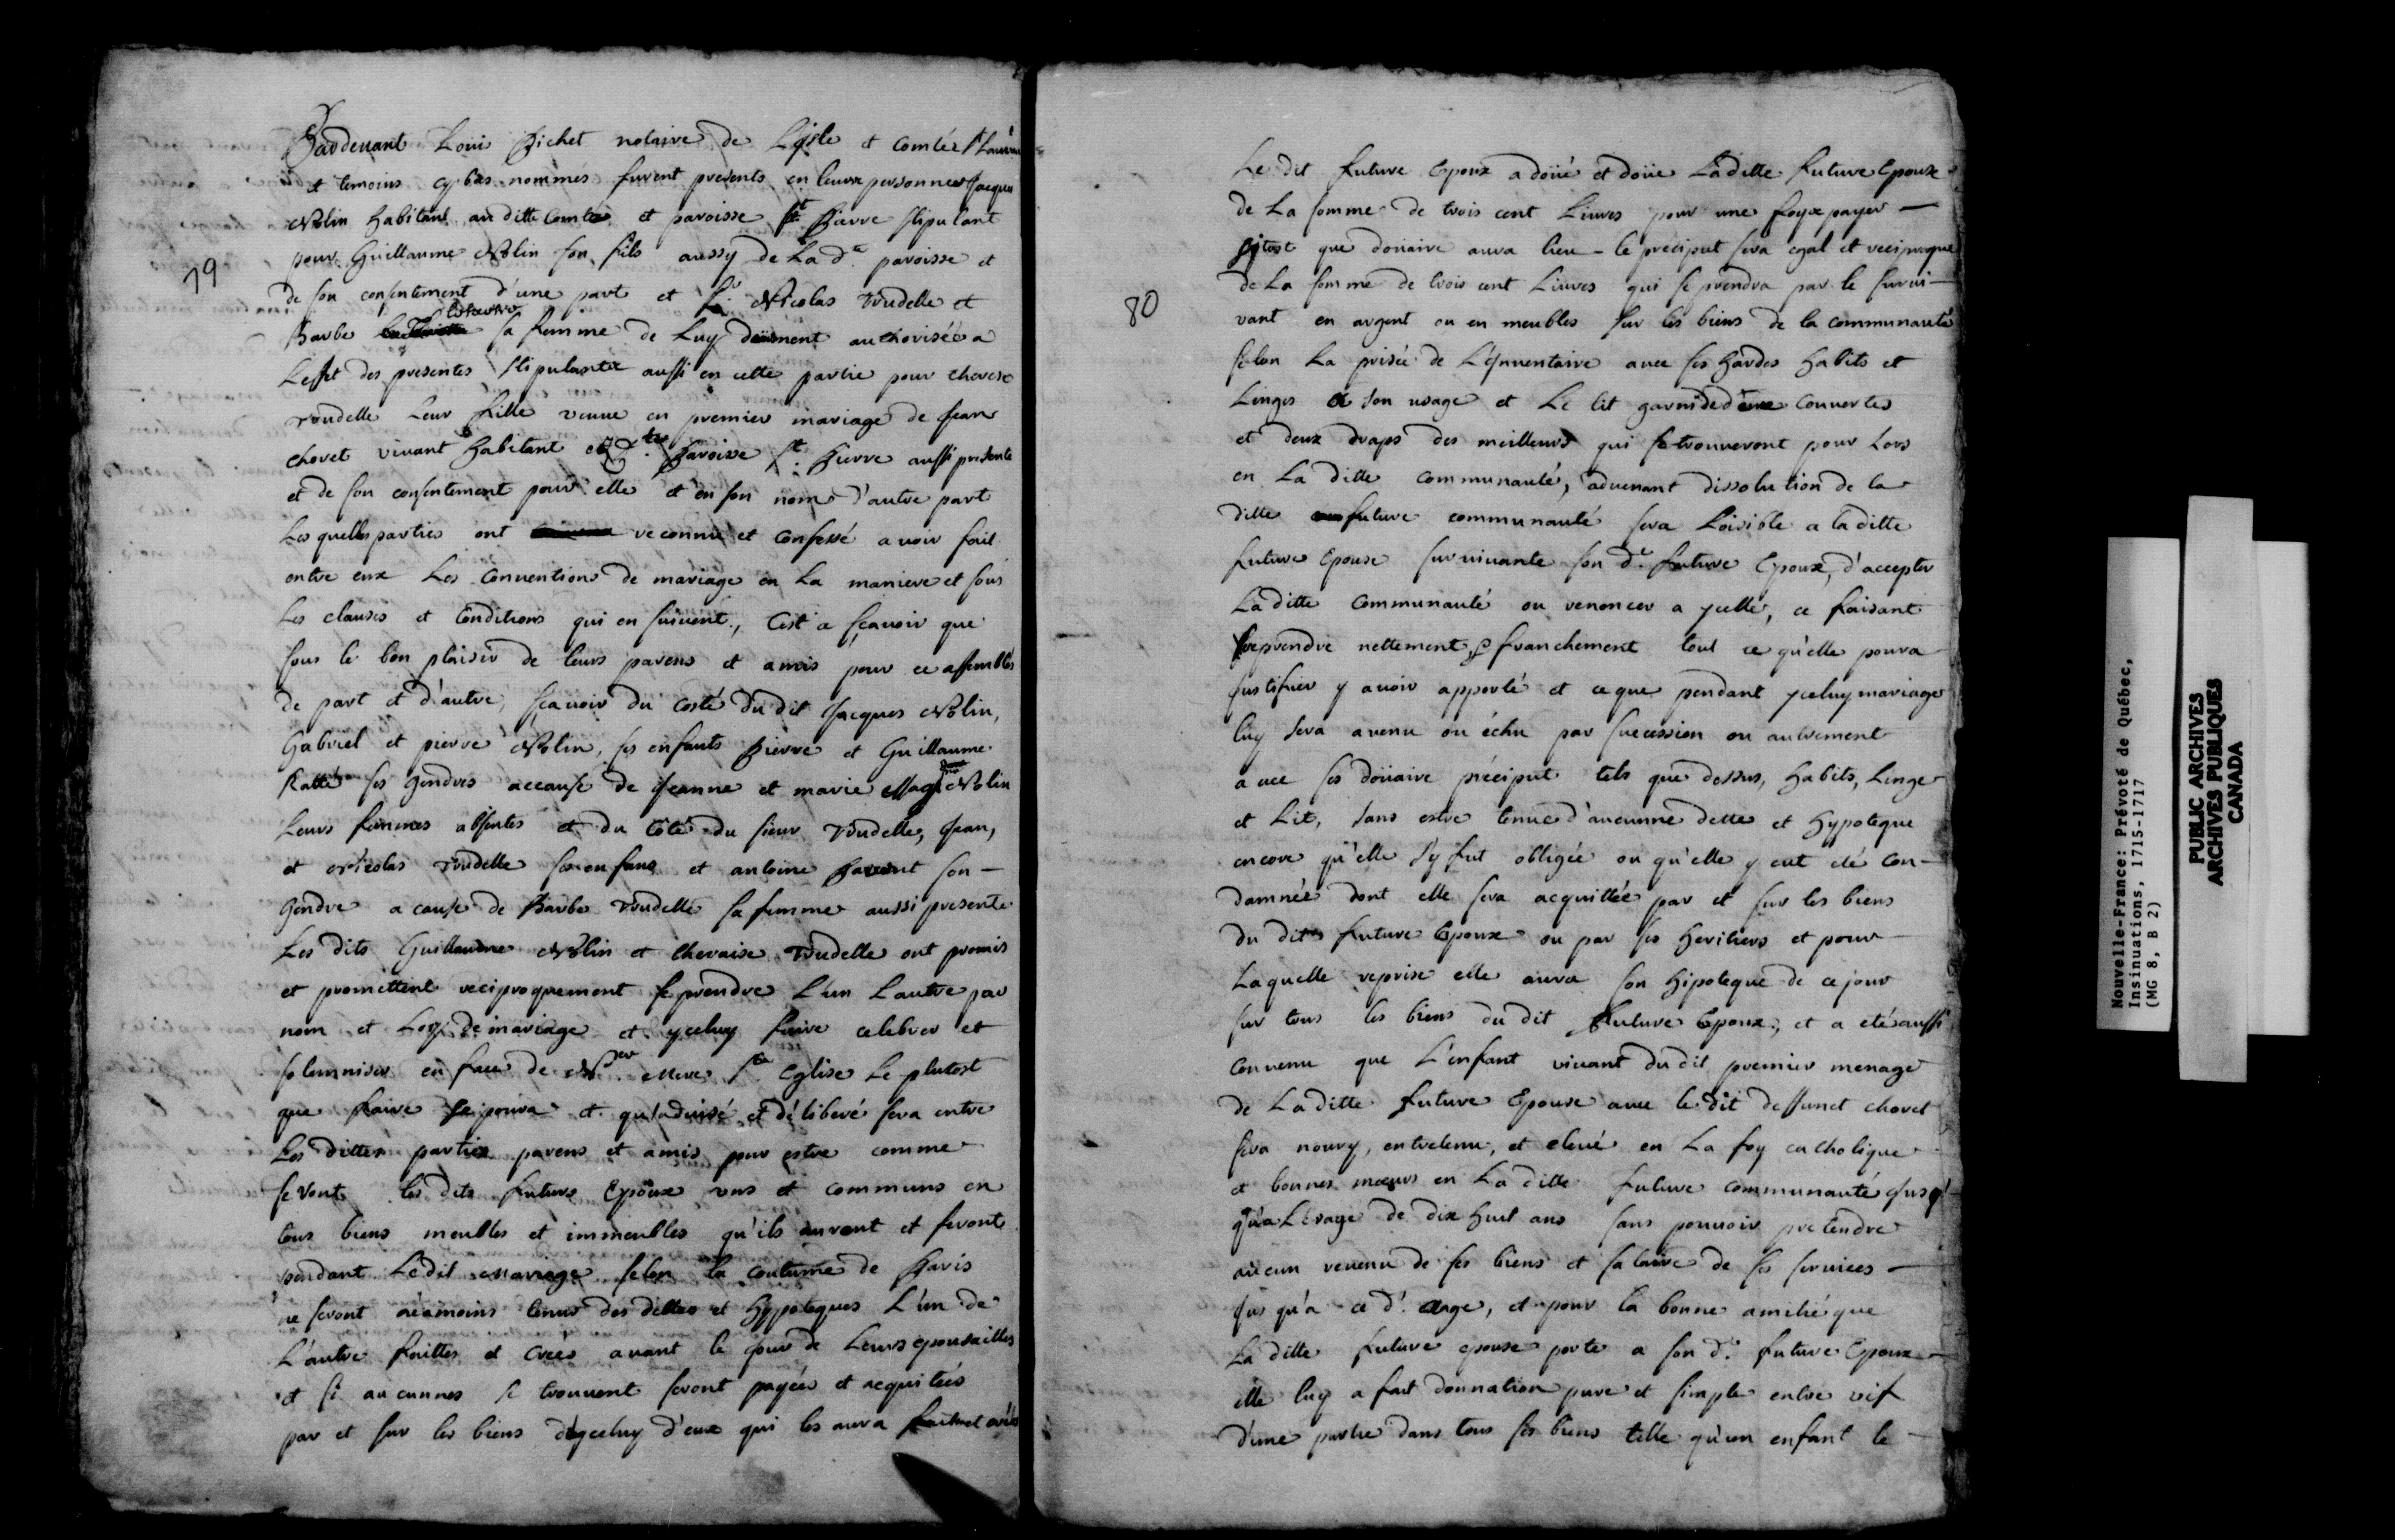 Pardevant Loüis Pichet notaire de L'isle et comté St Laurens
et temoins cy bas nommés furent presents en leurs personnes Jacques
Nolin habitant au ditte comté et paroisse St Pierre stipulant
pour Guillaume Nolin son fils aussy de La de paroisse et
79
de son consentement d'une part et Sr Nicolas trudelle et
Barbe sa femme de Luy deüment authorisée a
Leffet des presentes stipulante aussi en cette partie pour therese
trudelle Leur fille veuve en premier mariage de Jean
choret vivant habitant paroisse St Pierre aussi presente
et de son consentement pour elle et en son nom d'autre part
Les quelles parties ont reconnu et confessé avoir fait
entre eux Les Conventions de mariage en La maniere et sous
Les clauses et Conditions qui en suivent, C'est a sçavoir que
sous le bon plaisir de leurs parens et amis pour ce assemblés
de part et d'autre, sçavoir du costé du dit Jacques Nolin,
Gabriel et pierre Nolin, ses enfants Pierre et Guillaume
Ratté ses gendres acause de Jeanne et marie Nolin
Leurs femmes absentes et du côté du sieur trudelle, Jean,
et Nicolas trudelle ses enfans et antoine Parent son
gendre a cause de Barbe trudelle sa femme aussi presente
Les dits Guillaume Nolin et theraise trudelle ont promis
et promettent reciproquement se prendre L'un L'autre par
nom et Loy de mariage et yceluy faire celebrer et
solemniser en face de mere Ste Eglise Le plutost
que faire se poura et qu'advisé et délibéré sera entre
Les dittes parties parens et amis pour estre comme
seront les dits futurs Epoux uns et communs en
tous biens meubles et immeubles qu'ils auront et feront
pendant Ledit mariage selon la Coutume de Paris
ne seront néamoins tenus des dettes et hypoteques L'un de
L'autre faittes et créés avant le jour de Leurs epousailles
et si aucunnes se trouvent seront payées et acquitées
par et sur les biens d'yceluy d'eux qui les aura faittes et créés
Le dit future Epoux a doüé et doüe La ditte future Epouse
de La somme de trois cent Livres pour une foys payer
sitost que doüaire aura lieu le preciput sera egal et reciproque
de La somme de trois cent Livres qui se prendra par le survi-
80
vant en argent ou en meubles sur les biens de la communauté
selon La prisée de L'Inventaire avec ses hardes habits et
Linges a son usage et Le lit garni de deux Couvertes
et deux draps des meilleurs qui se trouveront pour Lors
en La ditte communauté, advenant dissolution de la
ditte future communauté sera Loisible a la ditte
future Epouse survivante son dt future Epoux, d'accepter
La ditte communauté ou renoncer a ycelle, ce faisant
reprendre nettement, et franchement tout ce qu'elle poura
justifier y avoir apporté et ce que pendant yceluy mariage
luy sera avenu ou échu par succession ou autrement
avec ses doüaire préciput tels que dessus, habits, Linge
et Lit, sans estre tenue d'aucunne dette et hypoteque
encore qu'elle s'y fut obligée ou qu'elle y eut eté con-
damnée dont elle sera acquittée par et sur les biens
du dit future Epoux ou par ses heritiers et pour
Laquelle reprise elle aura son hipoteque de ce jour
sur tous les biens du dit future Epoux, et a eté aussi
convenu que L'enfant vivant du dit premier menage
de La ditte future Epouse avec le dit deffunct choret
sera noury, entretenu, et elevé en La foy catholique
et bonnes moeurs en La ditte future communauté Jusq'
qu'a L'eage de dix huit ans sans pouvoir pretendre
aucun revenu de ses biens et salaire de ses services
Jus qu'a ce dt age, et pour la bonne amitié que
La ditte future epouse porte a son dt future Epoux
elle luy a fait donnation pure et simple entre vif
d'une partie dans tous ses biens telle qu'un enfant le
Nouvelle-France: Prévoté de Québec,
Insinuations, 1715-1717
(MG 8, B 2)
PUBLIC ARCHIVES
ARCHIVES PUBLIQUES
CANADA